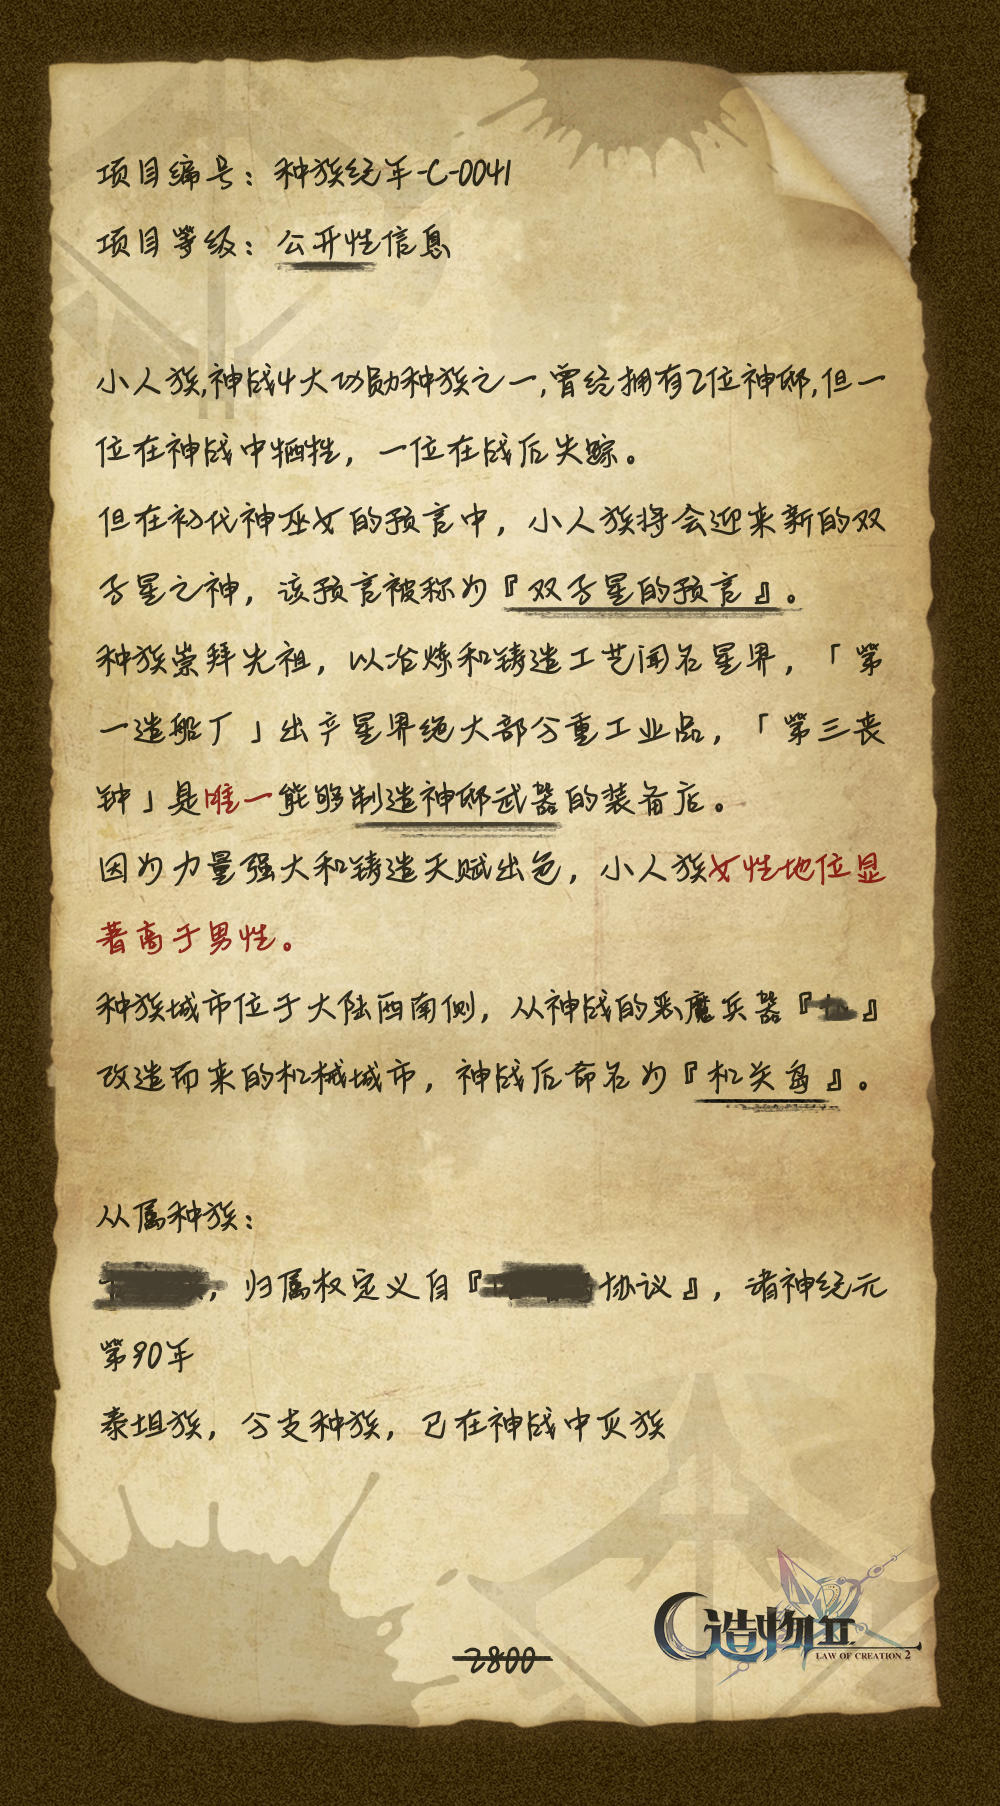 项目编号：种族纪年-C-0041
项目等级：公开性信息
小人族,神战4大功勋种族之一,曾经拥有2位神邸,但一
位在神战中牺牲，一位在战后失踪。
但在初代神巫女的预言中，小人族将会迎来新的双
子星之神，该预言被称为『双子星的预言』。
种族崇拜先祖，以冶炼和铸造工艺闻名星界，「第
一造船厂」出产星界绝大部分重工业品，「第三丧
钟」是唯一能够制造神邸武器的装备店。
因为力量强大和铸造天赋出色，小人族女性地位显
著离于男性。
种族城市位于大陆西南侧，从神战的恶魔兵器『』
改造而来的机械城市，神战后命名为『机关岛』。
从属种族：
，归属权定义自『协议』，诸神纪元
第90年
泰坦族，分支种族，已在神战中灭族
2800
造物II
LAW OF CREATION 2